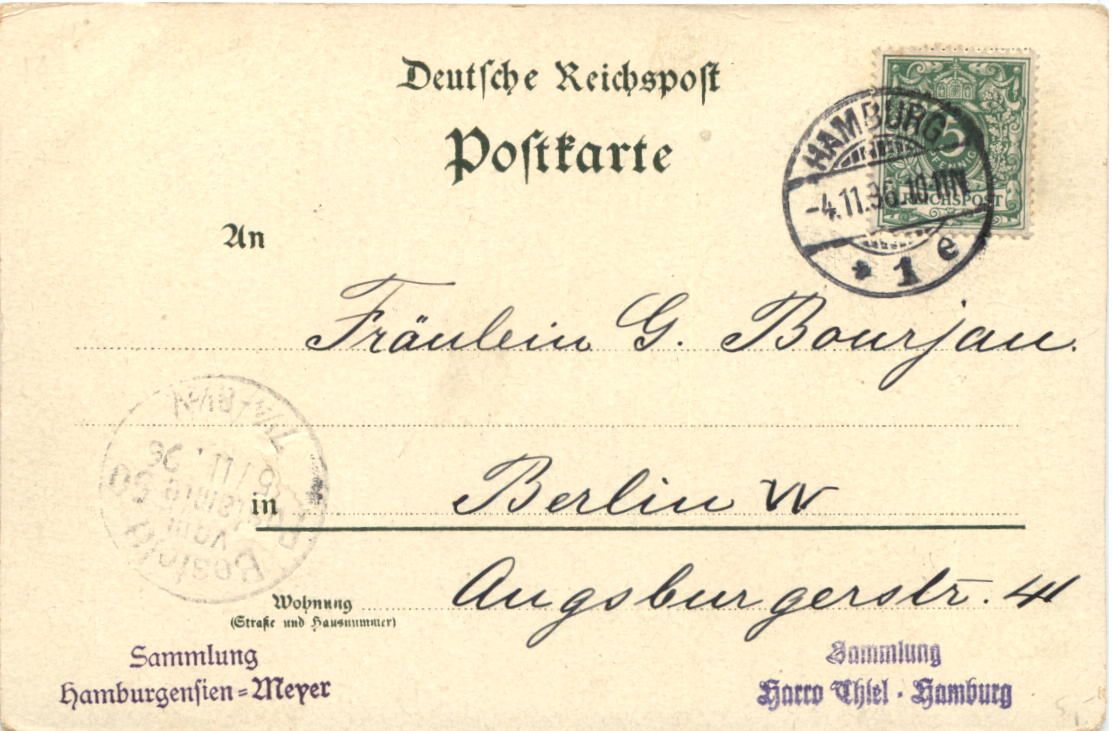 Deutsche Reichspost
Postkarte
HAMBURG
-4.11.96.10-11N
* 1 e
5
PFENNIG
REICHSPOST
An
Fräulein G. Bourjau.
in Berlin W
Augsburgerstr. 41
Wohnung
(Straße und Hausnummer)
Sammlung
Hamburgensien=Meyer
Sammlung
Harro Thiel · Hamburg